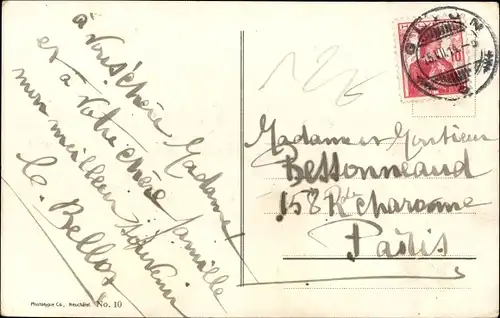 à vous chère Madame
et à votre chère famille
mon meilleur souvenir
C. Bellon
Phototypie Co., Neuchâtel No. 10
10
Madame et Monsieur
Bessonneaud
158 R. de Charonne
Paris